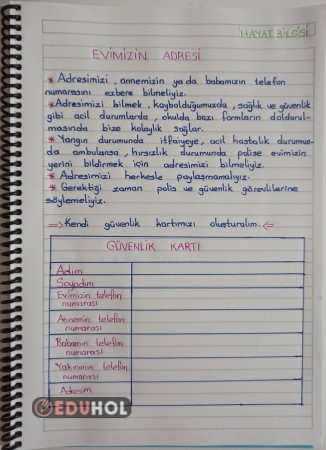 HAYAT BİLGİSİ
EVİMİZİN ADRESİ
* Adresimizi, annemizin ya da babamızın telefon
numarasını ezbere bilmeliyiz.
* Adresimizi bilmek, kaybolduğumuzda, sağlık ve güvenlik
gibi acil durumlarda, okulda bazı formların doldurul-
masında bize kolaylık sağlar.
* Yangın durumunda itfaiyeye, acil hastalık durumun-
da ambulansa, hırsızlık durumunda polise evimizin
yerini bildirmek için adresimizi bilmeliyiz.
* Adresimizi herkesle paylaşmamalıyız.
* Gerektiği zaman polis ve güvenlik görevlilerine
söylemeliyiz.
⇒ Kendi güvenlik kartımızı oluşturalım. ⇐
GÜVENLİK KARTI
Adım
Soyadım
Evimizin telefon
numarası
Annemin telefon
numarası
Babamın telefon
numarası
Yakınımın telefon
numarası
Adresim
EDUHOL